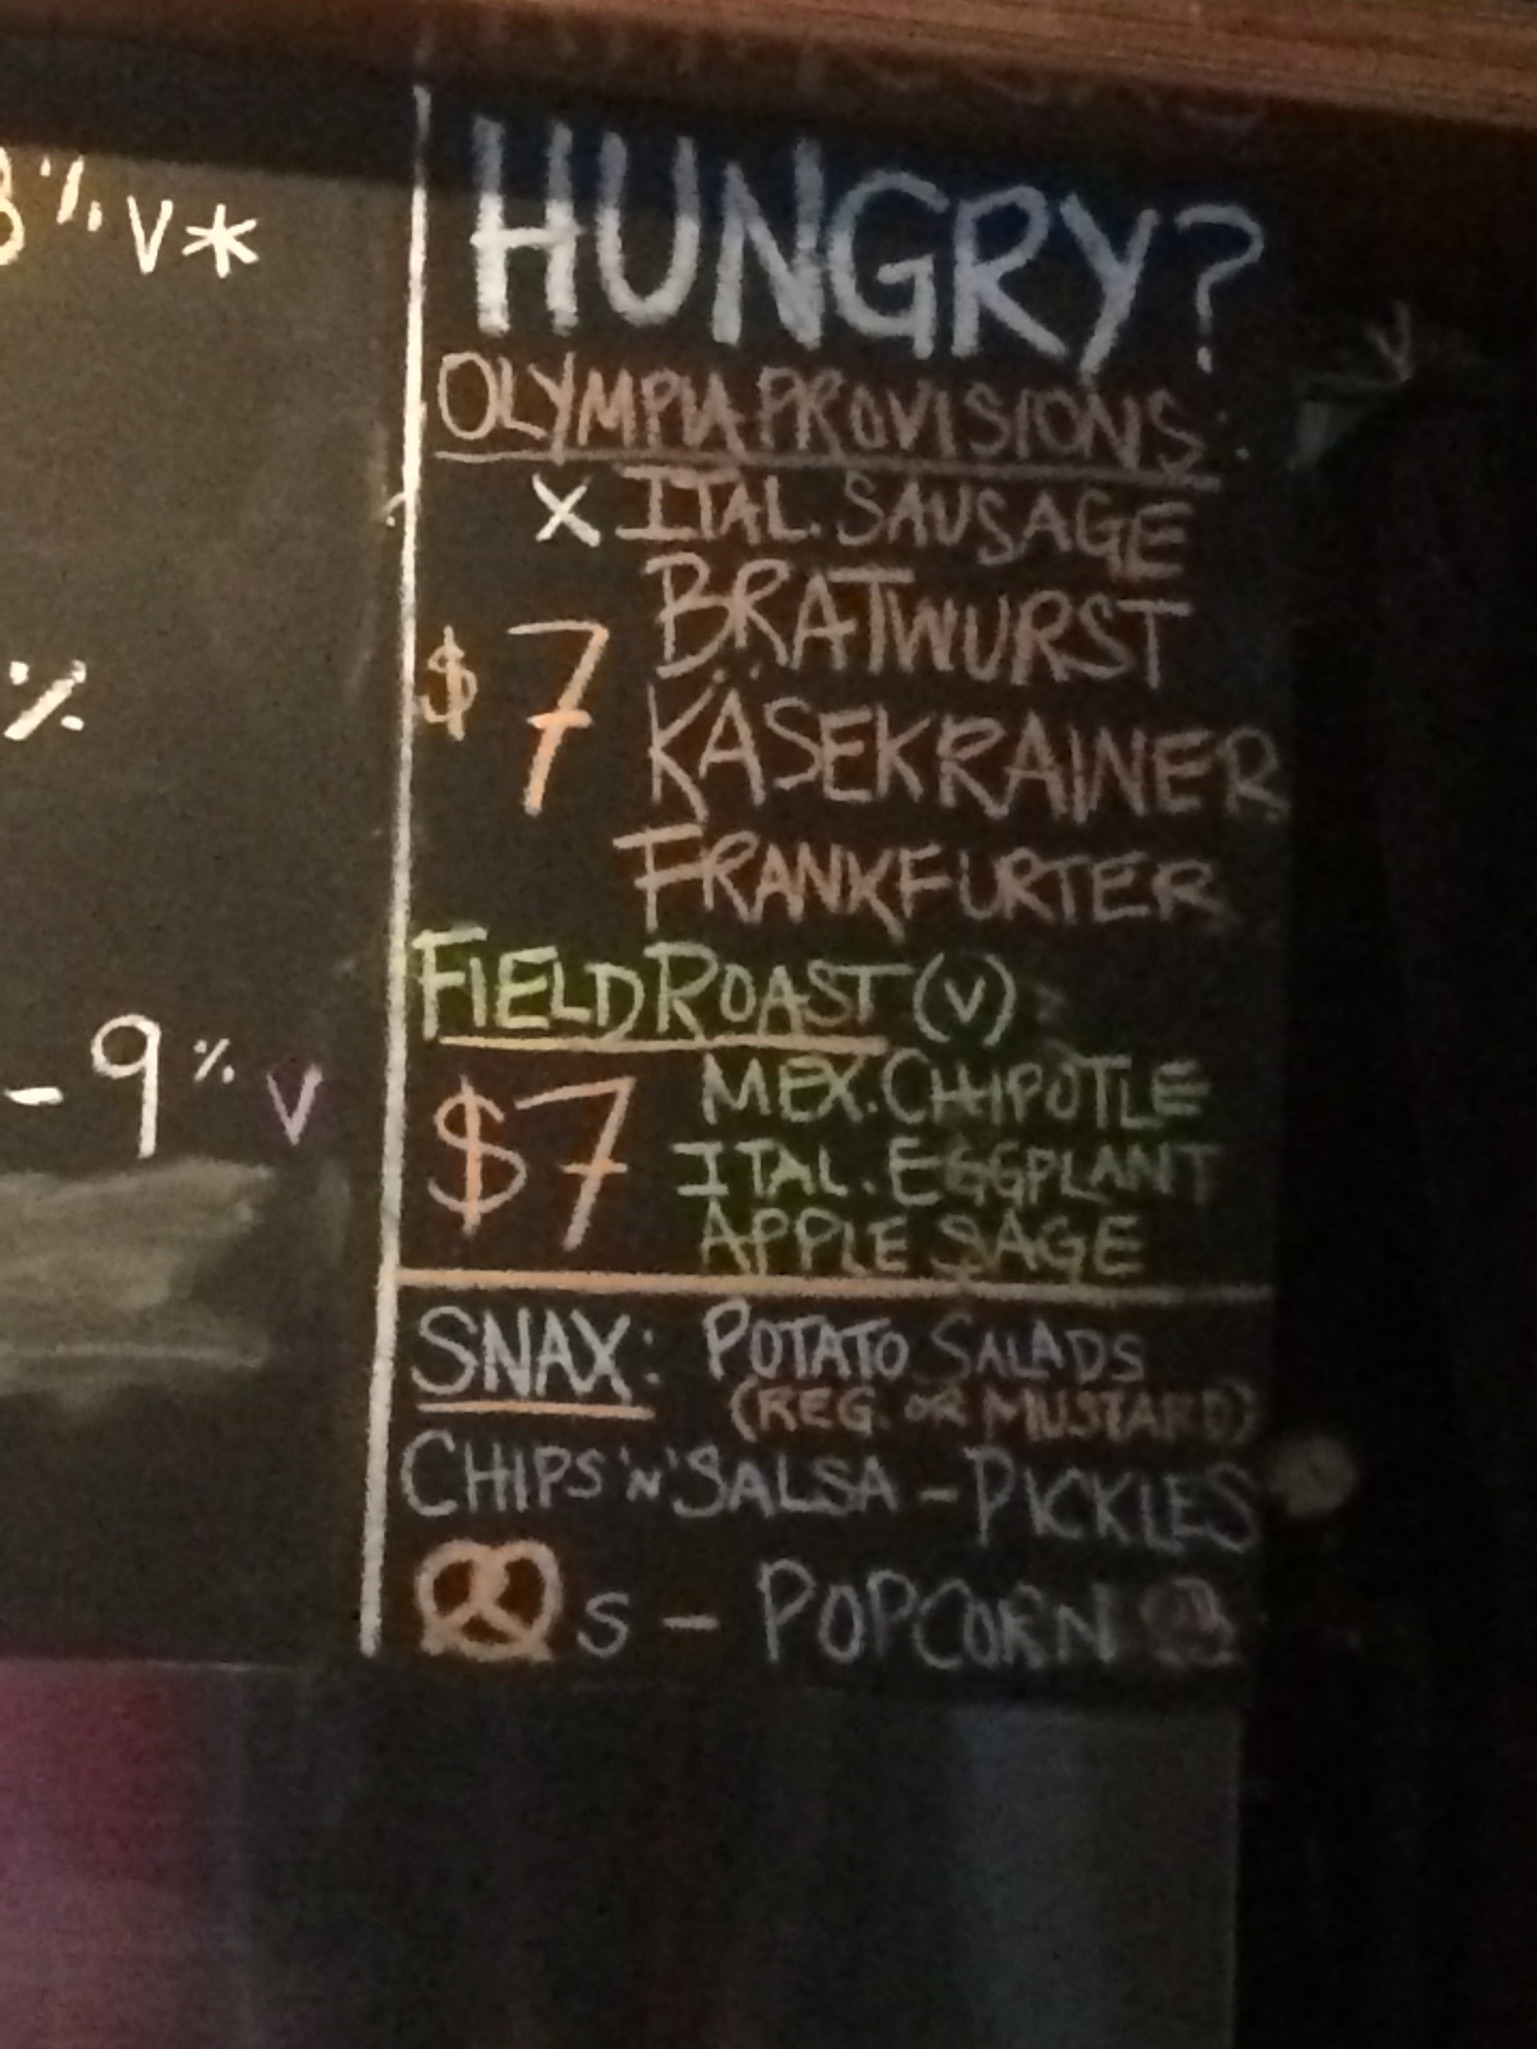 % V*
%
- 9% V
HUNGRY?
OLYMPIA PROVISIONS:
X ITAL. SAUSAGE
BRATWURST
$7
KÄSEKRAINER
FRANKFURTER
FIELD ROAST (V):
$7
MEX. CHIPOTLE
ITAL. EGGPLANT
APPLE SAGE
SNAX: POTATO SALADS
(REG. OR MUSTARD)
CHIPS 'N' SALSA - PICKLES
S - POPCORN